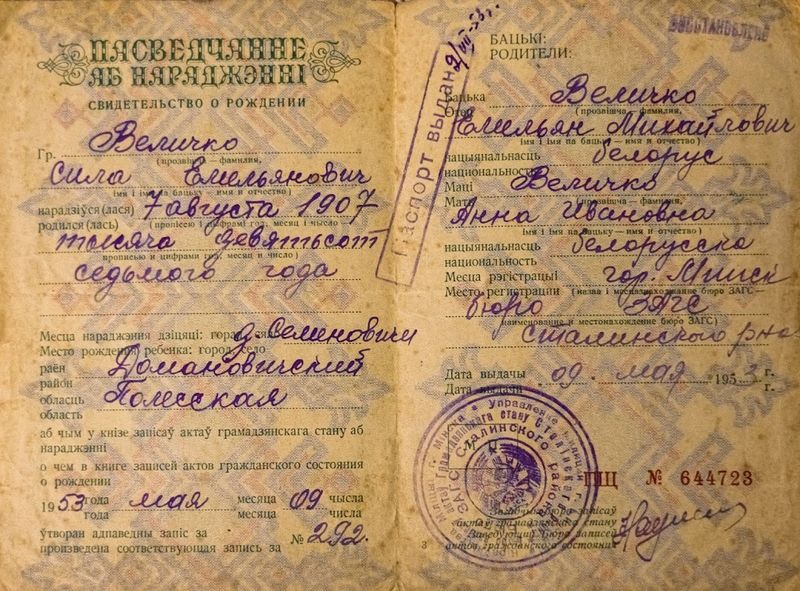 ПАСВЕДЧАННЕ
АБ НАРАДЖЭННІ
СВИДЕТЕЛЬСТВО О РОЖДЕНИИ
Гр. Величко
(прозвішча — фамилия,
Сила Емельянович
імя і імя па бацьку — имя и отчество)
нарадзіўся (лася) 7 августа 1907
родился (лась) (прописею і цыфрамі год, месяц і чысло
тысяча девятьсот
прописью и цифрами год, месяц и число)
седьмого года
Месца нараджэння дзіцяці: горад, сяло д. Семиновичи
Место рождения ребенка: город, село
раён Домановичский
район
обласць Полесская
область
аб чым у кнізе запісаў актаў грамадзянскага стану аб
нараджэнні
о чем в книге записей актов гражданского состояния
о рождении
1953 года мая месяца 09 чысла
года месяца числа
утворан адпаведны запіс за № 292.
произведена соответствующая запись за
ВОССТАНОВЛЕНО
БАЦЬКІ:
РОДИТЕЛИ:
Паспорт выдан 9/VII-53 г.
Бацька Величко
Отец (прозвішча — фамилия,
Емильян Михайлович
імя і імя па бацьку — имя и отчество)
нацыянальнасць белорус
национальность
Маці Величко
Мать (прозвішча — фамилия,
Анна Ивановна
імя і імя па бацьку — имя и отчество)
нацыянальнасць белорусска
национальность
Месца рэгістрацыі гор. Минск
Место регистрации (назва і месцазнаходжанне бюро ЗАГС —
бюро ЗАГС
наименование и местонахождение бюро ЗАГС)
Сталинского р-на
Дата выдачы 09. мая 1953 г.
Дата выдачи г.
ЗАГС Сталинского района
№ 644723
Загадчык бюро запісаў
актаў грамадзянскага стану
Заведующий бюро записей
3 актов гражданского состояния